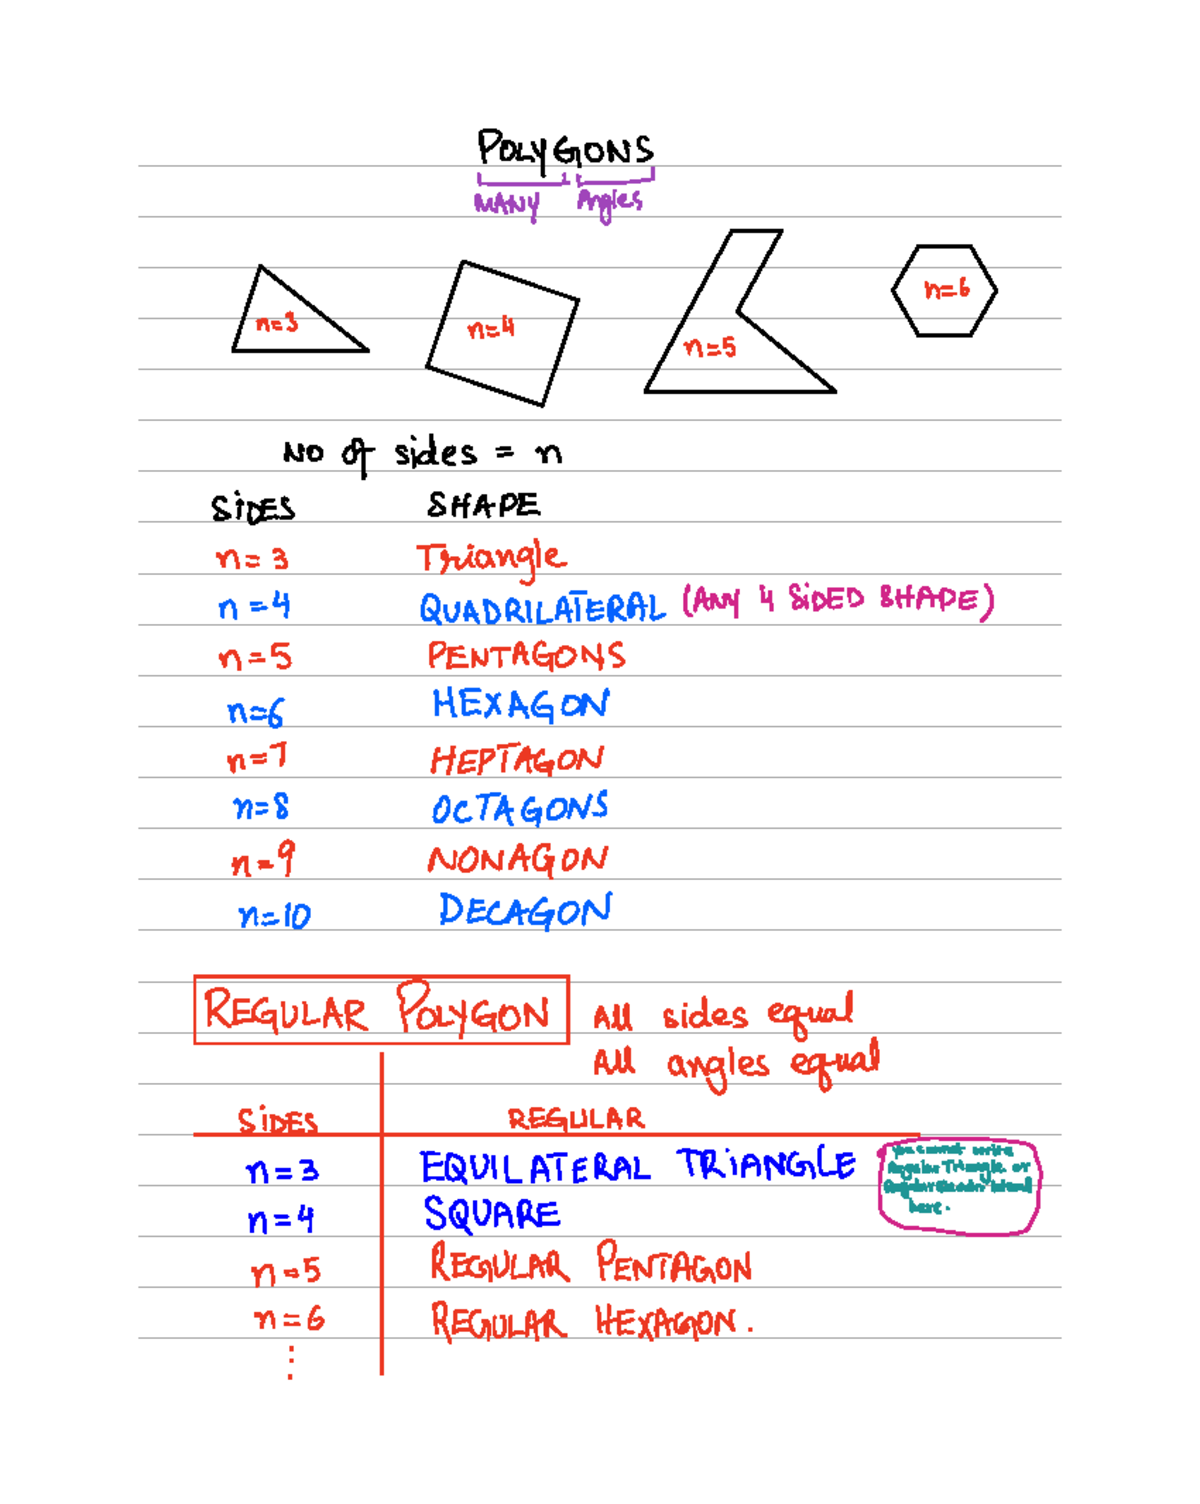 POLYGONS
MANY Angles
n=3
n=4
n=5
n=6
NO of sides = n
SIDES SHAPE
n=3 Triangle
n=4 QUADRILATERAL (ANY 4 SIDED SHAPE)
n=5 PENTAGONS
n=6 HEXAGON
n=7 HEPTAGON
n=8 OCTAGONS
n=9 NONAGON
n=10 DECAGON
REGULAR POLYGON All sides equal
All angles equal
SIDES REGULAR
n=3 EQUILATERAL TRIANGLE
n=4 SQUARE
n=5 REGULAR PENTAGON
n=6 REGULAR HEXAGON.
⋮
You cannot write
Regular Triangle or
here.